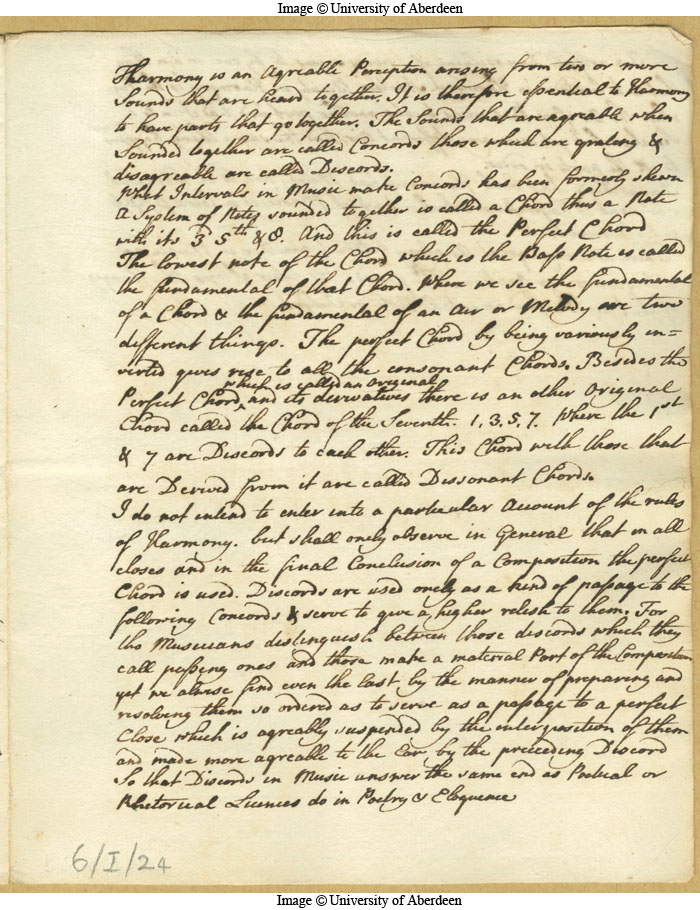 Image © University of Aberdeen
Harmony is an Agreable Perception arising from two or more
Sounds that are heard together. It is therefore essential to Harmony
to have parts that go together. The Sounds that are agreable when
Sounded together are called Concords those which are grating &
disagreable are called Discords.
What Intervals in Music make Concords has been formerly shewn
A System of Notes sounded together is called a Chord thus a Note
with its 3d 5th & 8. And this is called the Perfect Chord
The lowest note of the Chord which is the Bass Note is called
the fundamental of that Chord. Where we see the fundamental
of a Chord & the fundamental of an Air or Melody are two
different things. The perfect Chord by being variously in=
verted gives rise to all the consonant Chords. Besides the
which is called an original
Perfect Chord ^ and its derivatives there is an other Original
Chord called the Chord of the Seventh. 1, 3, 5, 7. Where the 1st
& 7 are Discords to each other. This Chord with those that
are Derived from it are called Dissonant Chords.
I do not intend to enter into a particular Account of the rules
of Harmony. but shall only observe in General that in all
closes and in the final Conclusion of a Composition the perfect
Chord is used. Discords are used only as a kind of passage to the
following Concords & serve to give a higher relish to them. For
tho Musicians distinguish between those discords which they
call passing ones and those make a material Part of the Composition
yet we alwise find even the last by the manner of preparing and
resolving them so ordered as to serve as a passage to a perfect
Close which is agreably suspended by the interposition of them
and made more agreable to the Ear by the preceding Discord
So that Discords in Music answer the same end as Poetical or
Rhetorical Licences do in Poetry & Eloquence
6/I/24
Image © University of Aberdeen